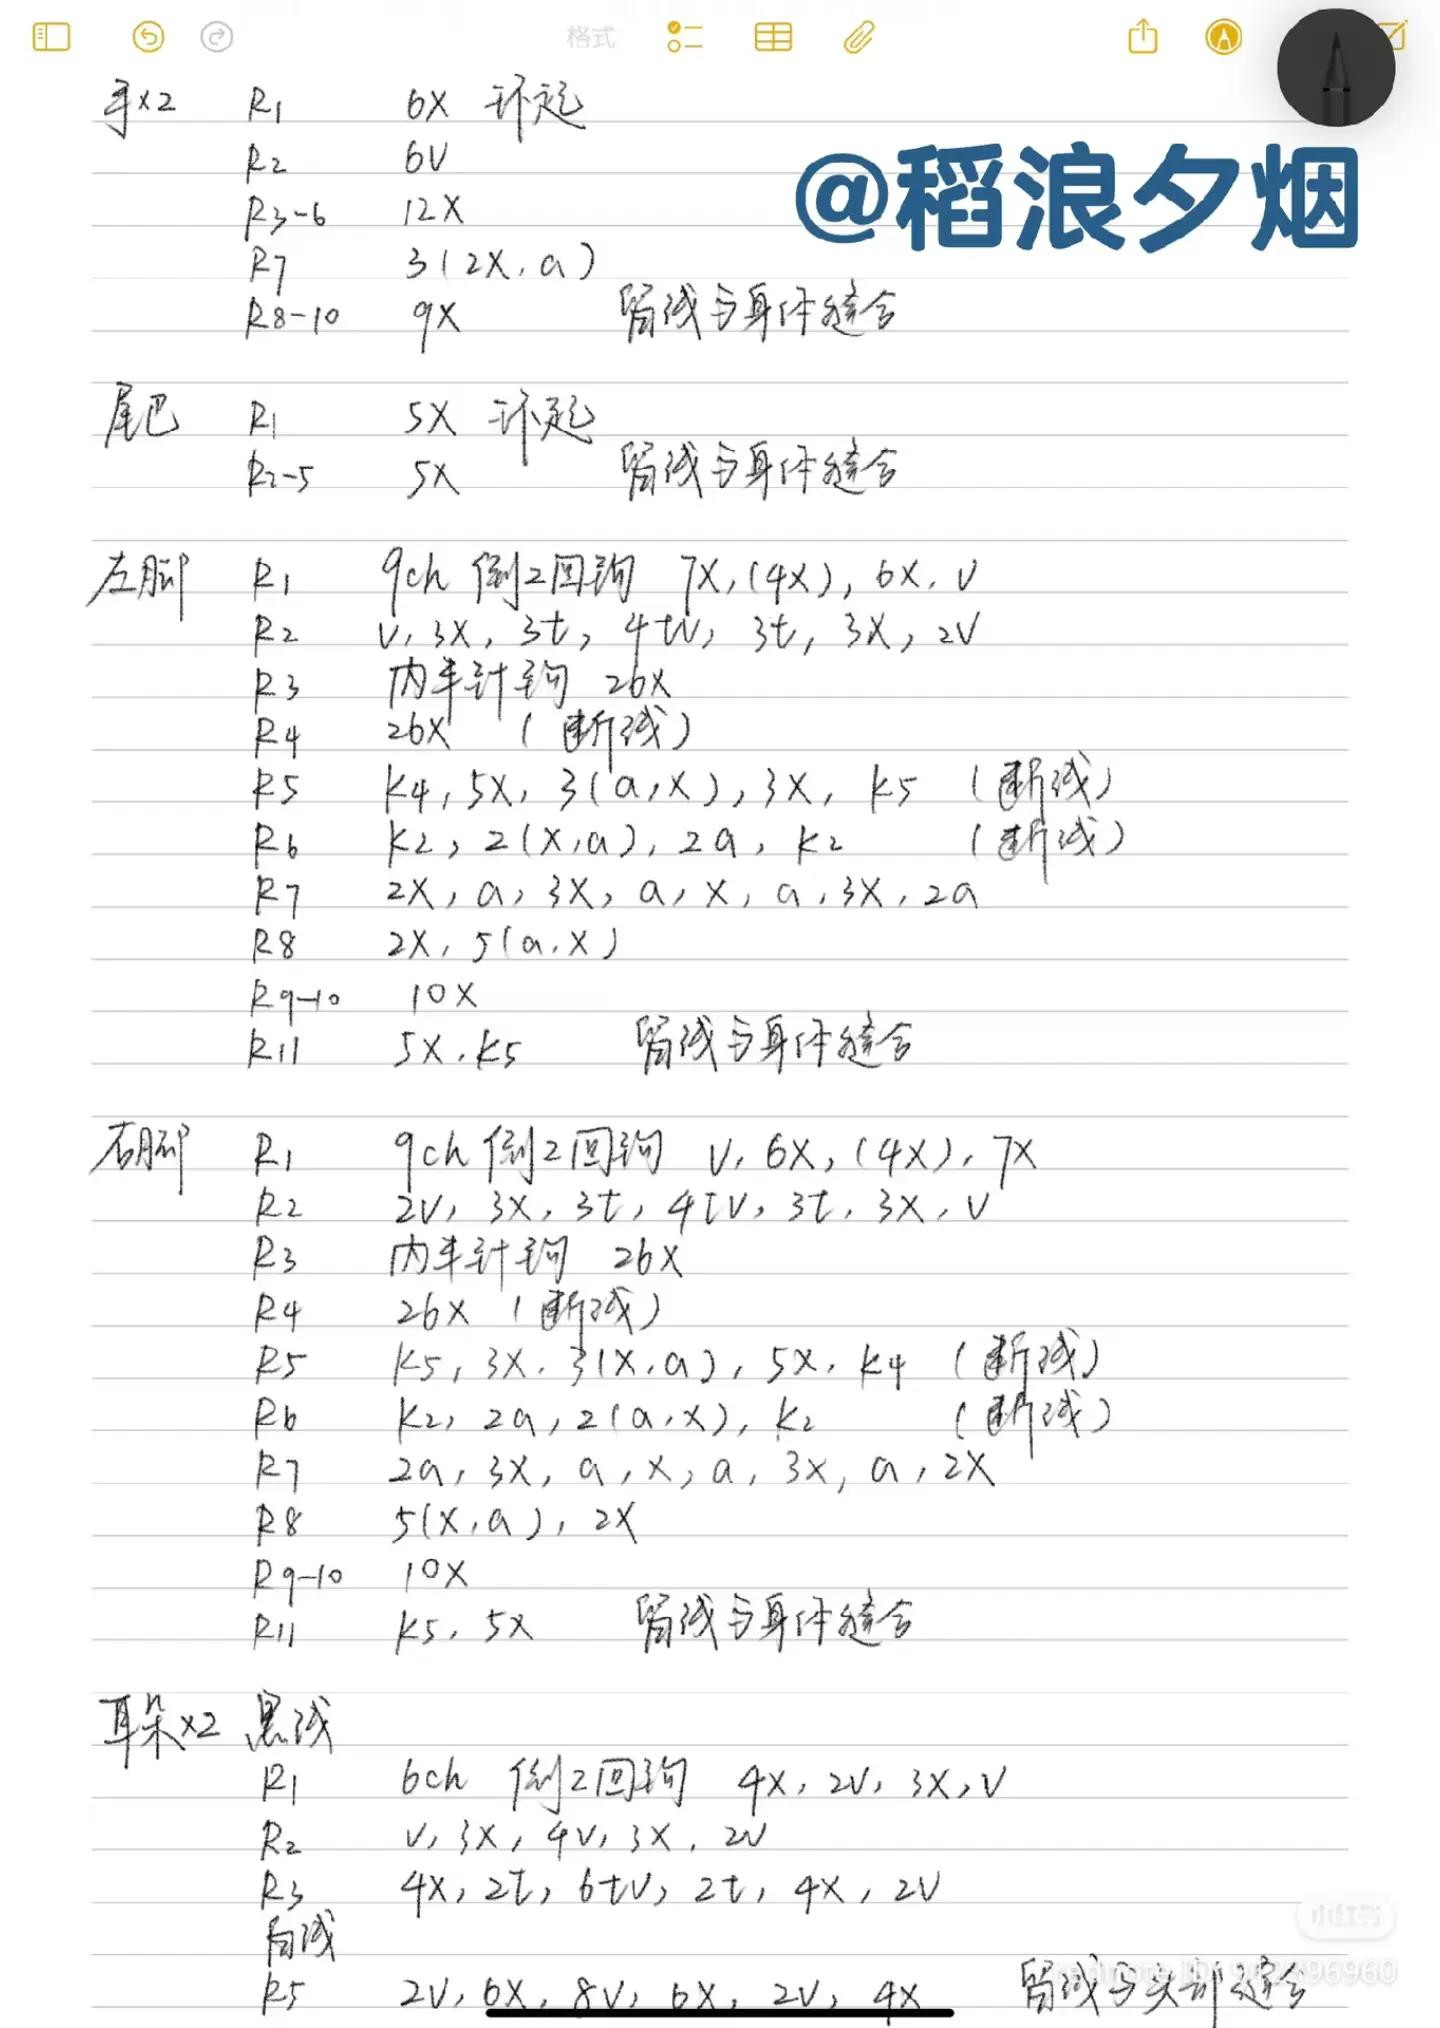 格式
@稻浪夕烟
手x2 R1 6X 环起
R2 6V
R3-6 12X
R7 3(2X,a)
R8-10 9X 留线与身体缝合
尾巴 R1 5X 环起
R2-5 5X 留线与身体缝合
左脚 R1 9ch 倒2回钩 7X,(4X),6X,V
R2 V,3X,3t,4tV,3t,3X,2V
R3 内半针钩 26X
R4 26X (断线)
R5 K4,5X,3(a,X),3X,K5 (断线)
R6 K2,2(X,a),2a,K2 (断线)
R7 2X,a,3X,a,X,a,3X,2a
R8 2X,5(a,X)
R9-10 10X
R11 5X,K5 留线与身体缝合
右脚 R1 9ch 倒2回钩 V,6X,(4X),7X
R2 2V,3X,3t,4tV,3t,3X,V
R3 内半针钩 26X
R4 26X (断线)
R5 K5,3X,3(X,a),5X,K4 (断线)
R6 K2,2a,2(a,X),K2 (断线)
R7 2a,3X,a,X,a,3X,a,2X
R8 5(X,a),2X
R9-10 10X
R11 K5,5X 留线与身体缝合
耳朵x2 黑线
R1 6ch 倒2回钩 4X,2V,3X,V
R2 V,3X,4V,3X,2V
R3 4X,2t,6tV,2t,4X,2V
白线
R5 2V,6X,8V,6X,2V,4X 留线与头部缝合
小红书